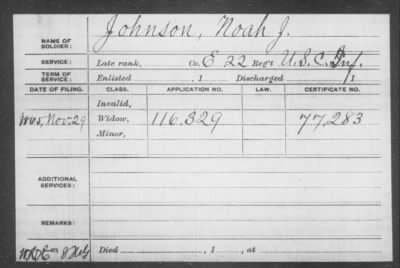 NAME OF SOLDIER: Johnson, Noah J.
SERVICE: Late rank, Co. E 22 Reg't U.S.C. Inf.
TERM OF SERVICE: Enlisted , 1 Discharged , 1
DATE OF FILING. CLASS. APPLICATION NO. LAW. CERTIFICATE NO.
Invalid,
1865, Nov. 29 Widow, 116.329 77,283
Minor,
ADDITIONAL SERVICES:
REMARKS:
Died , 1 , at